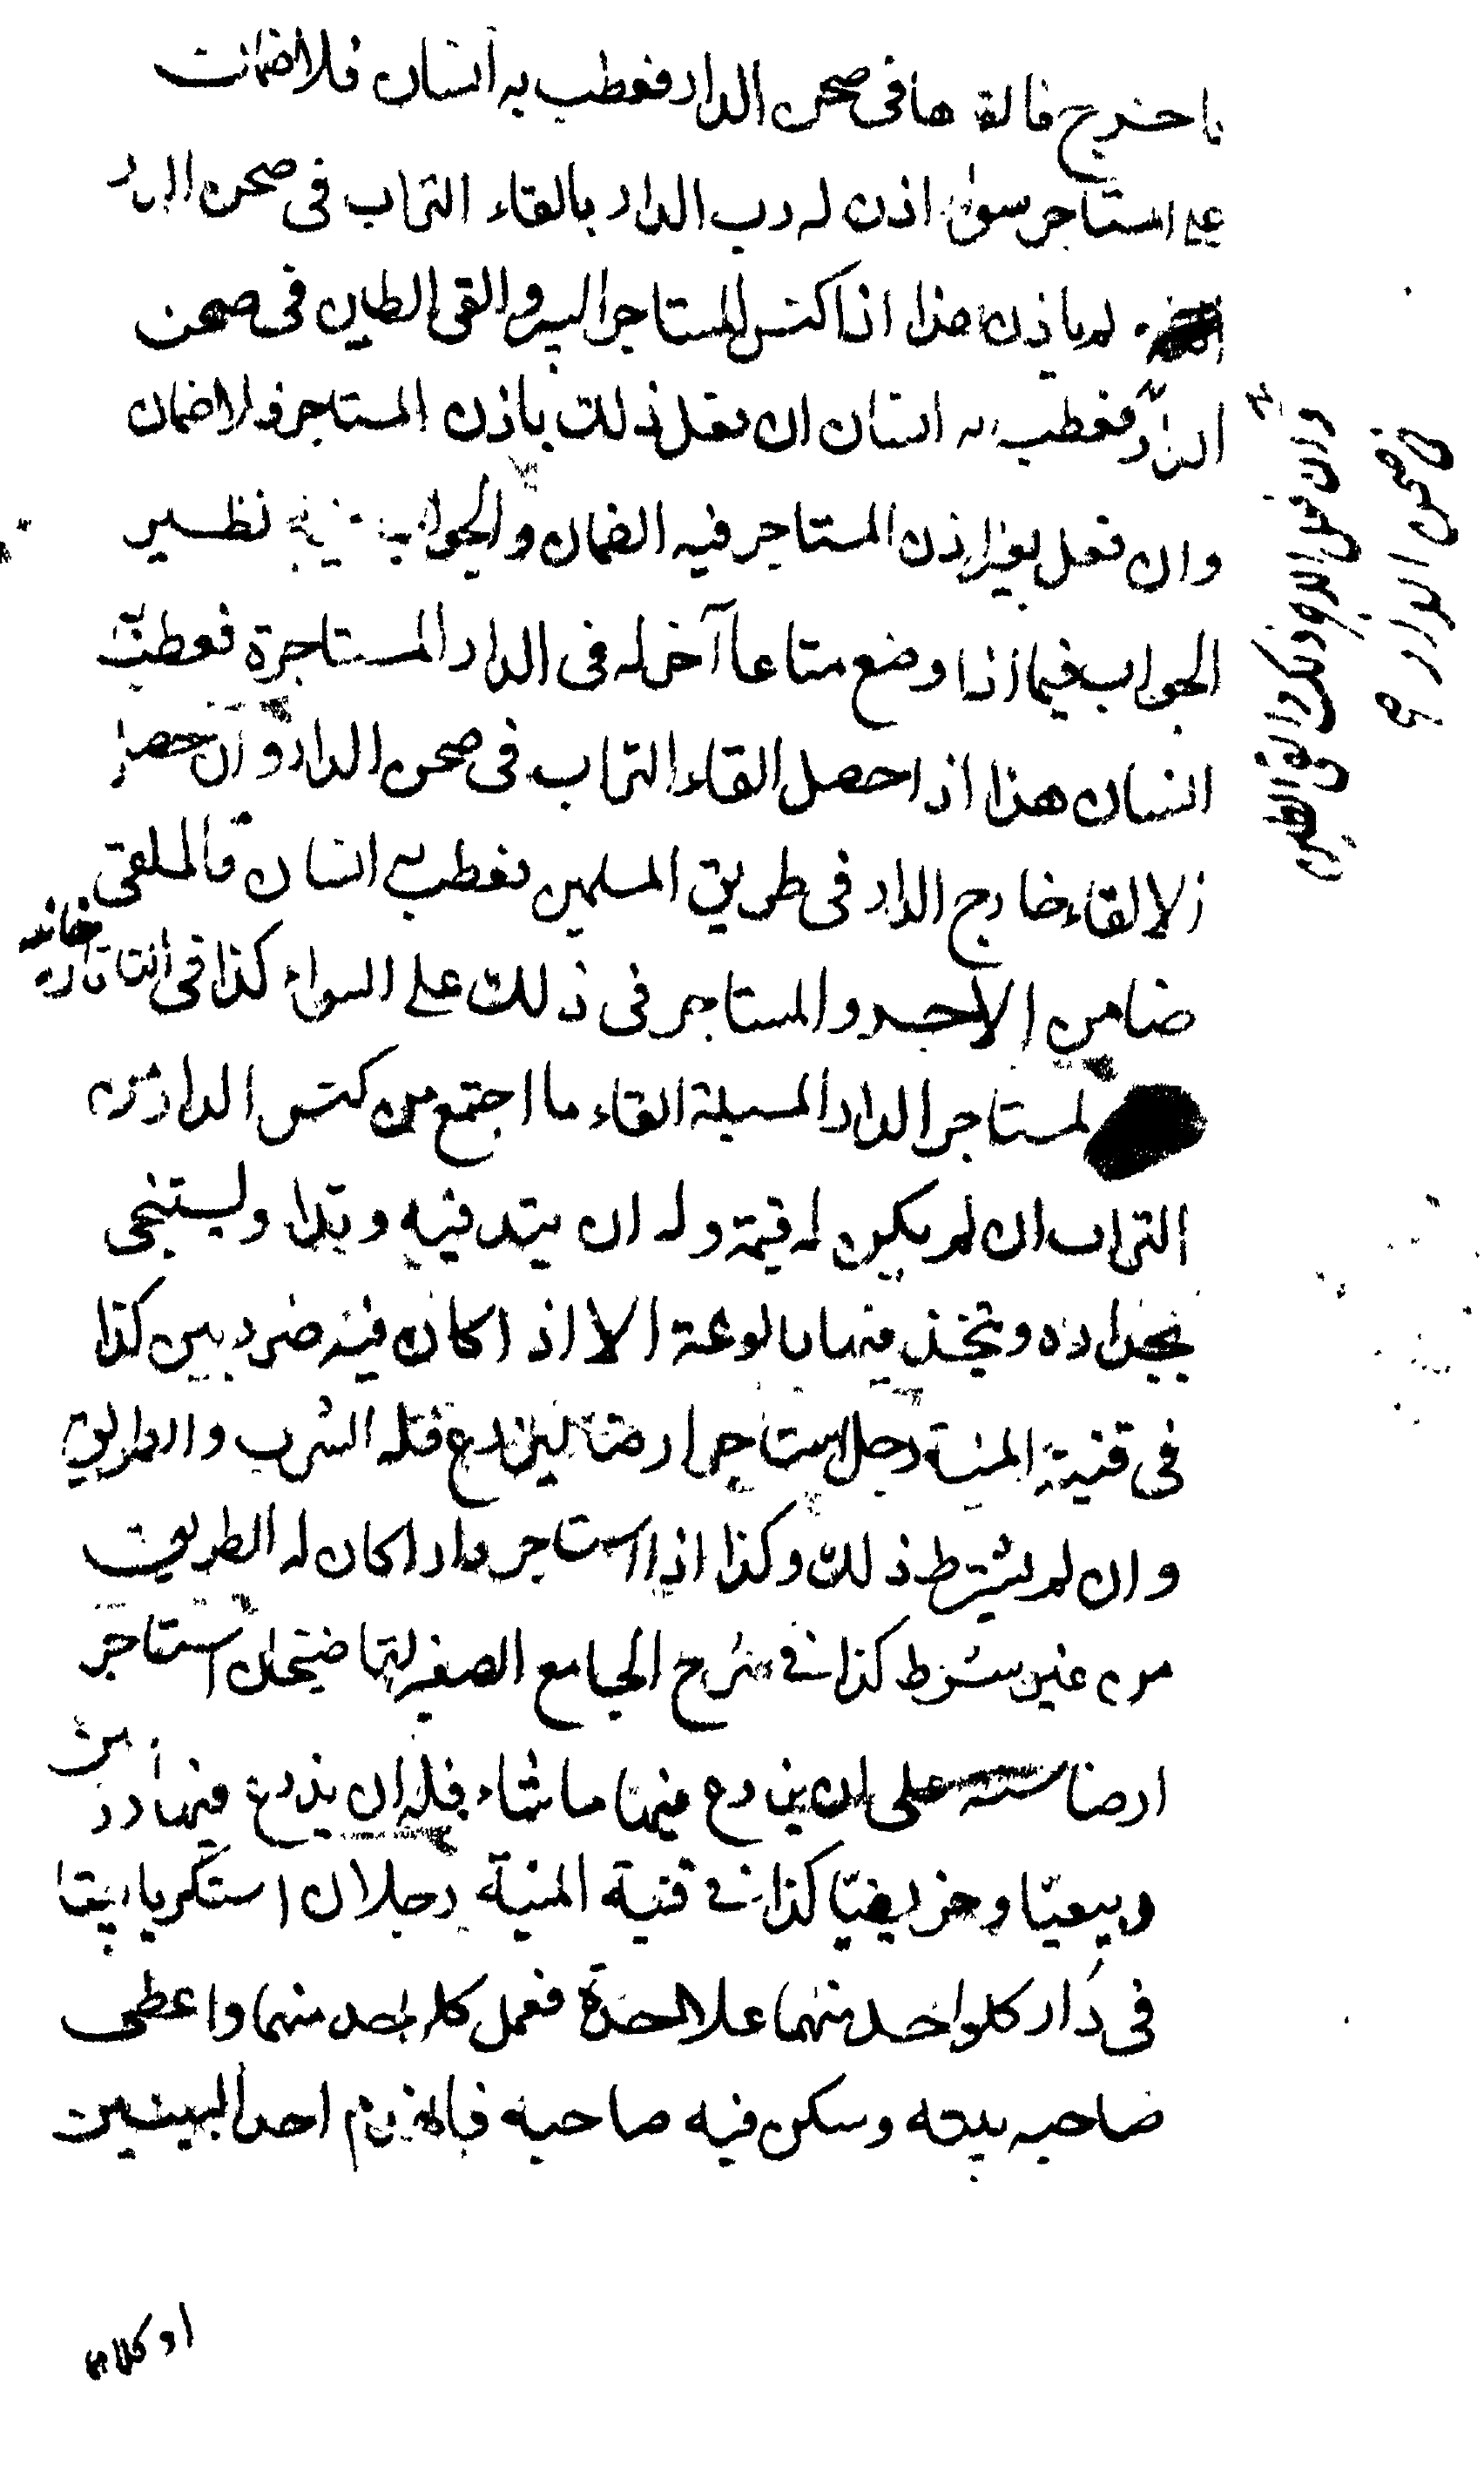 ما خرج فالقاها فى صحن الدار فعطب به انسان فلا ضمان
على المستاجر سواء اذن له رب الدار بالقاء التراب فى صحن الدار
لم ياذن هذا اذا كنس المستاجر البير والقى الطين فى صحن
الدار فعطب به انسان ان فعل ذلك باذن المستاجر فلا ضمان
وان فعل بغير اذن المستاجر فيه الضمان والجواب فيه نظير
الجواب فيما اذا وضع متاعا آخر له فى الدار المستاجرة فعطب
انسان هذا اذا حصل القاء التراب فى صحن الدار وان حصل
الالقاء خارج الدار فى طريق المسلمين فعطب به انسان فالملقى
ضامن الاجر والمستاجر فى ذلك على السواء كذا فى التاتارخانيه
لمستاجر الدار المسبلة القاء ما اجتمع من كنس الدار من
التراب ان لم يكن له قيمة وله ان يتد فيه وتدا وليستنجى
بجداره ويتخذ فيها بالوعة الا اذا كان فيه ضرر بين كذا
فى قنية المنية رجل استاجر ارضا ليزرع فله الشرب والطريق
وان لم يشترط ذلك وكذا اذا استاجر دارا كان له الطريق
من غير شرط كذا فى شرح الجامع الصغير لقاضيخان استاجر
ارضا سنه على ان يزرع فيها ما شاء فله ان يزرع فيها زرعين
ربيعيا وخريفيا كذا فى قنية المنية رجلان استكريا بيتا
فى دار كل واحد منهما علاحدة فعمل كل واحد منهما واعطى
صاحبه بيته وسكن فيه صاحبه فانهدم احد البيتين
او كلاهما
وان كنس البير وذلك والقى الطين
فى صحن الدار